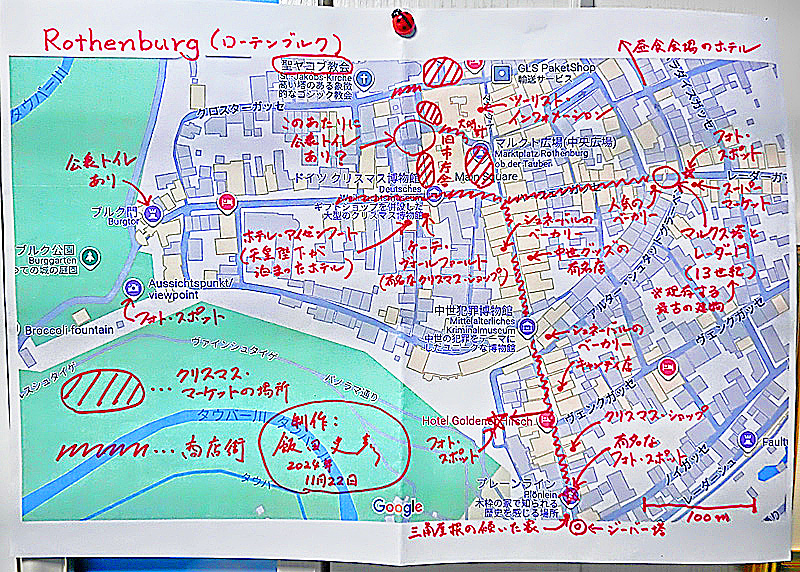 Rothenburg (ローテンブルク)
聖ヤコブ教会
St.-Jakobs-Kirche
高い塔のある象徴
的なゴシック教会
GLS PaketShop
輸送サービス
昼食会場のホテル
タウバー川
クロスターガッセ
ツーリスト・
インフォメーション
このあたりに
公衆トイレ
あり?
旧市庁舎
マルクト広場(中央広場)
Marktplatz Rothenburg
ob der Tauber
Main Square
フォト・
スポット
公衆トイレ
あり
ドイツ クリスマス博物館
Deutsches
Weihnachtsmuseum
ギフトショップを併設した
大型のクリスマス博物館
レーダーガ
スーパー
マーケット
人気の
ベーカリー
ブルク門
Burgtor
ブルク公園
Burggarten
ての城の庭園
ホテル・アイゼンフート
(天皇陛下が
泊まったホテル)
ケーテ・
ヴォールファールト
(有名なクリスマス・ショップ)
シュネーバルの
ベーカリー
中世グッズの
有名店
マルクス塔と
レーダー門
(13世紀)
※現存する
最古の建物
Aussichtspunkt/
viewpoint
フォト・スポット
Broccoli-fountain
中世犯罪博物館
Mittelalterliches
Kriminalmuseum
中世の犯罪をテーマに
したユニークな博物館
シュネーバルの
ベーカリー
キャンディ店
ヴェンクガッセ
ヴァインシュタイゲ
パノラマ通り
クリスマス・
マーケットの場所
タウバー川
商店街
制作:
2024年
11月22日
Hotel Goldener Hirsch
フォト・
スポット
クリスマス・ショップ
有名な
フォト・スポット
ヴェンクガッセ
ノイガッセ
プレーンライン
Plönlein
木枠の家で知られる
歴史を感じる場所
Google
三角屋根の傾いた家
ジーバー塔
100m